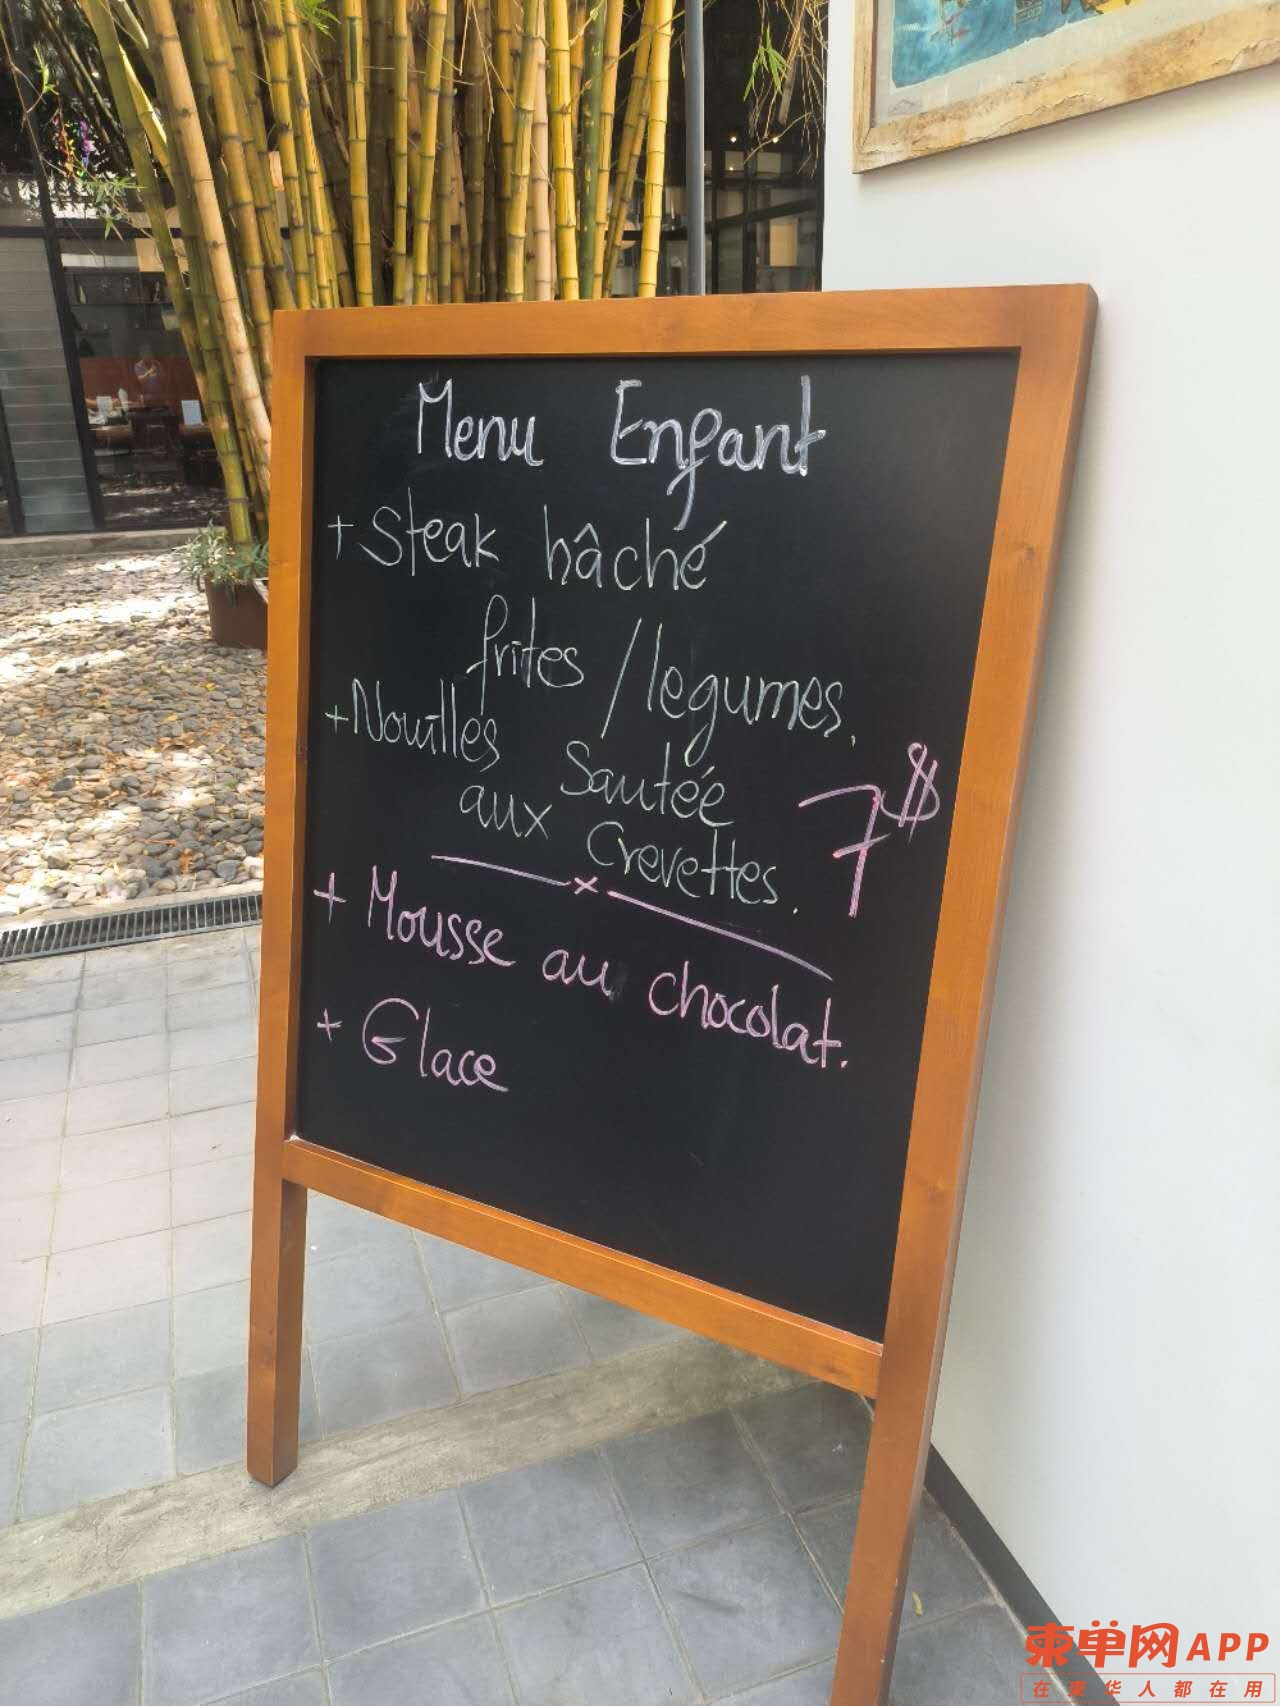 Menu Enfant
+ Steak hâché
frites / legumes.
+ Nouilles Sautée
aux Crevettes.
7$
+ Mousse au chocolat.
+ Glace
柬单网APP
在柬华人都在用